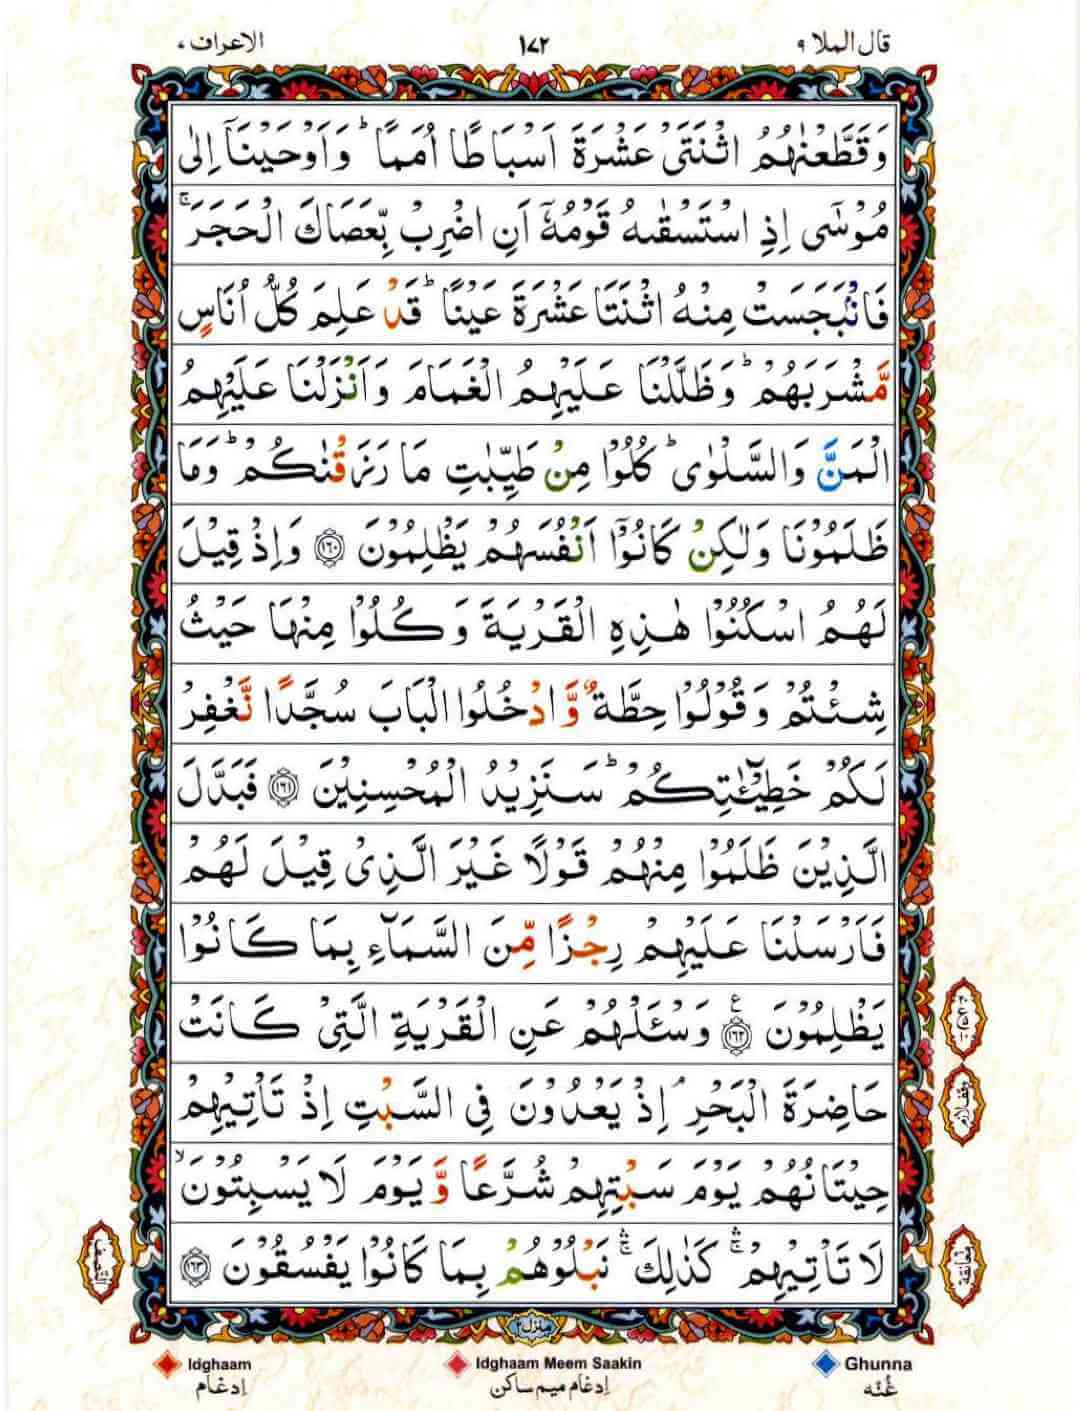 قال الملا ۹
١٧٢
الاعراف ٧
وَقَطَّعْنٰهُمُ اثْنَتَیْ عَشْرَةَ اَسْبَاطًا اُمَمًا ؕ وَاَوْحَیْنَاۤ اِلٰی
مُوْسٰۤی اِذِ اسْتَسْقٰىهُ قَوْمُهٗۤ اَنِ اضْرِبْ بِّعَصَاكَ الْحَجَرَ ۚ
فَانْۢبَجَسَتْ مِنْهُ اثْنَتَا عَشْرَةَ عَیْنًا ؕ قَدْ عَلِمَ كُلُّ اُنَاسٍ
مَّشْرَبَهُمْ ؕ وَظَلَّلْنَا عَلَیْهِمُ الْغَمَامَ وَاَنْزَلْنَا عَلَیْهِمُ
الْمَنَّ وَالسَّلْوٰی ؕ كُلُوْا مِنْ طَیِّبٰتِ مَا رَزَقْنٰكُمْ ؕ وَمَا
ظَلَمُوْنَا وَلٰكِنْ كَانُوْۤا اَنْفُسَهُمْ یَظْلِمُوْنَ ﴿١٦٠﴾ وَاِذْ قِیْلَ
لَهُمُ اسْكُنُوْا هٰذِهِ الْقَرْیَةَ وَكُلُوْا مِنْهَا حَیْثُ
شِئْتُمْ وَقُوْلُوْا حِطَّةٌ وَّادْخُلُوا الْبَابَ سُجَّدًا نَّغْفِرْ
لَكُمْ خَطِیْٓـٰٔتِكُمْ ؕ سَنَزِیْدُ الْمُحْسِنِیْنَ ﴿١٦١﴾ فَبَدَّلَ
الَّذِیْنَ ظَلَمُوْا مِنْهُمْ قَوْلًا غَیْرَ الَّذِیْ قِیْلَ لَهُمْ
فَاَرْسَلْنَا عَلَیْهِمْ رِجْزًا مِّنَ السَّمَآءِ بِمَا كَانُوْا
یَظْلِمُوْنَ ﴿١٦٢﴾ ع وَسْئَلْهُمْ عَنِ الْقَرْیَةِ الَّتِیْ كَانَتْ
حَاضِرَةَ الْبَحْرِ ۘ اِذْ یَعْدُوْنَ فِی السَّبْتِ اِذْ تَاْتِیْهِمْ
حِیْتَانُهُمْ یَوْمَ سَبْتِهِمْ شُرَّعًا وَّیَوْمَ لَا یَسْبِتُوْنَ ۙ
لَا تَاْتِیْهِمْ ۛۚ كَذٰلِكَ ۛۚ نَبْلُوْهُمْ بِمَا كَانُوْا یَفْسُقُوْنَ ﴿١٦٣﴾
وقف لازم
معانقة
النصف
منزل ٢
Idghaam
ادغام
Idghaam Meem Saakin
ادغام میم ساکن
Ghunna
غُنّه